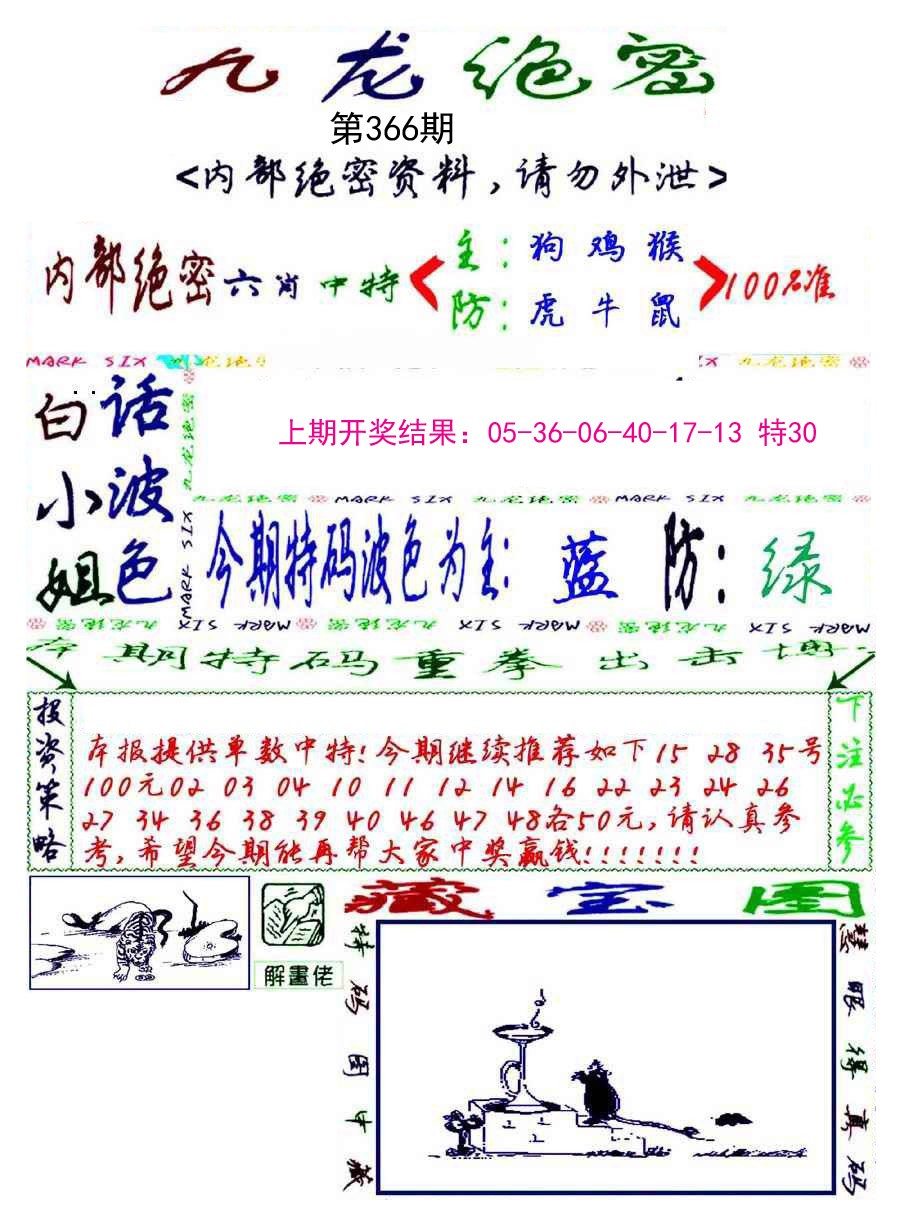 九龙绝密
第366期
<内部绝密资料,请勿外泄>
内部绝密六肖中特
主:狗鸡猴
防:虎牛鼠
100%准
MARK SIX 九龙绝密
九龙绝密
白小姐
话波色
九龙绝密 MARK SIX
上期开奖结果：05-36-06-40-17-13 特30
九龙绝密 MARK SIX 九龙绝密 MARK SIX 九龙绝密
今期特码波色为主:蓝 防:绿
九龙绝密 MARK SIX 九龙绝密 MARK SIX 九龙绝密 MARK SIX
本期特码重拳出击
投资策略
本报提供单数中特!今期继续推荐如下15 28 35号
100元02 03 04 10 11 12 14 16 22 23 24 26
27 34 36 38 39 40 46 47 48各50元,请认真参
考,希望今期能再帮大家中奖赢钱!!!!!!!
下注必参
解畫佬
藏宝图
特码图中藏
慧眼得真码